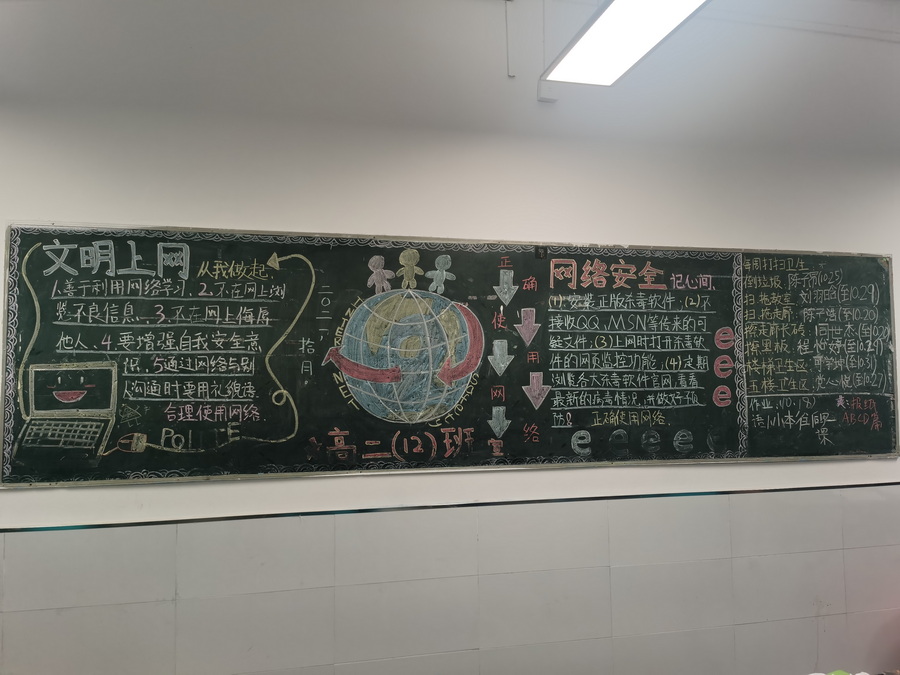 文明上网
从我做起
1.善于利用网络学习、2.不在网上浏
览不良信息、3.不在网上侮辱
他人、4.要增强自我安全意
识、5通过网络与别
人沟通时要用礼貌语
合理使用网络.
POLITE
二〇二一
拾月
INTERNET
高二(12)班
正确使用网络
网络安全
记心间
(1)安装正版杀毒软件；(2)不
接收QQ、MSN等传来的可
疑文件；(3)上网时打开杀毒软
件的网页监控功能；(4)定期
浏览各大杀毒软件官网,看看
最新的病毒情况,并做好预
防。
正确使用网络.
e
e
e
e e e e e
每周打扫卫生
倒垃圾
(10.25)
扫.拖教室
(至10.29)
扫.拖走廊
(至10.20)
擦走廊瓷砖
擦黑板
楼梯卫生区
(至10.31)
五楼卫生区
(至10.27)
作业
(10.18)